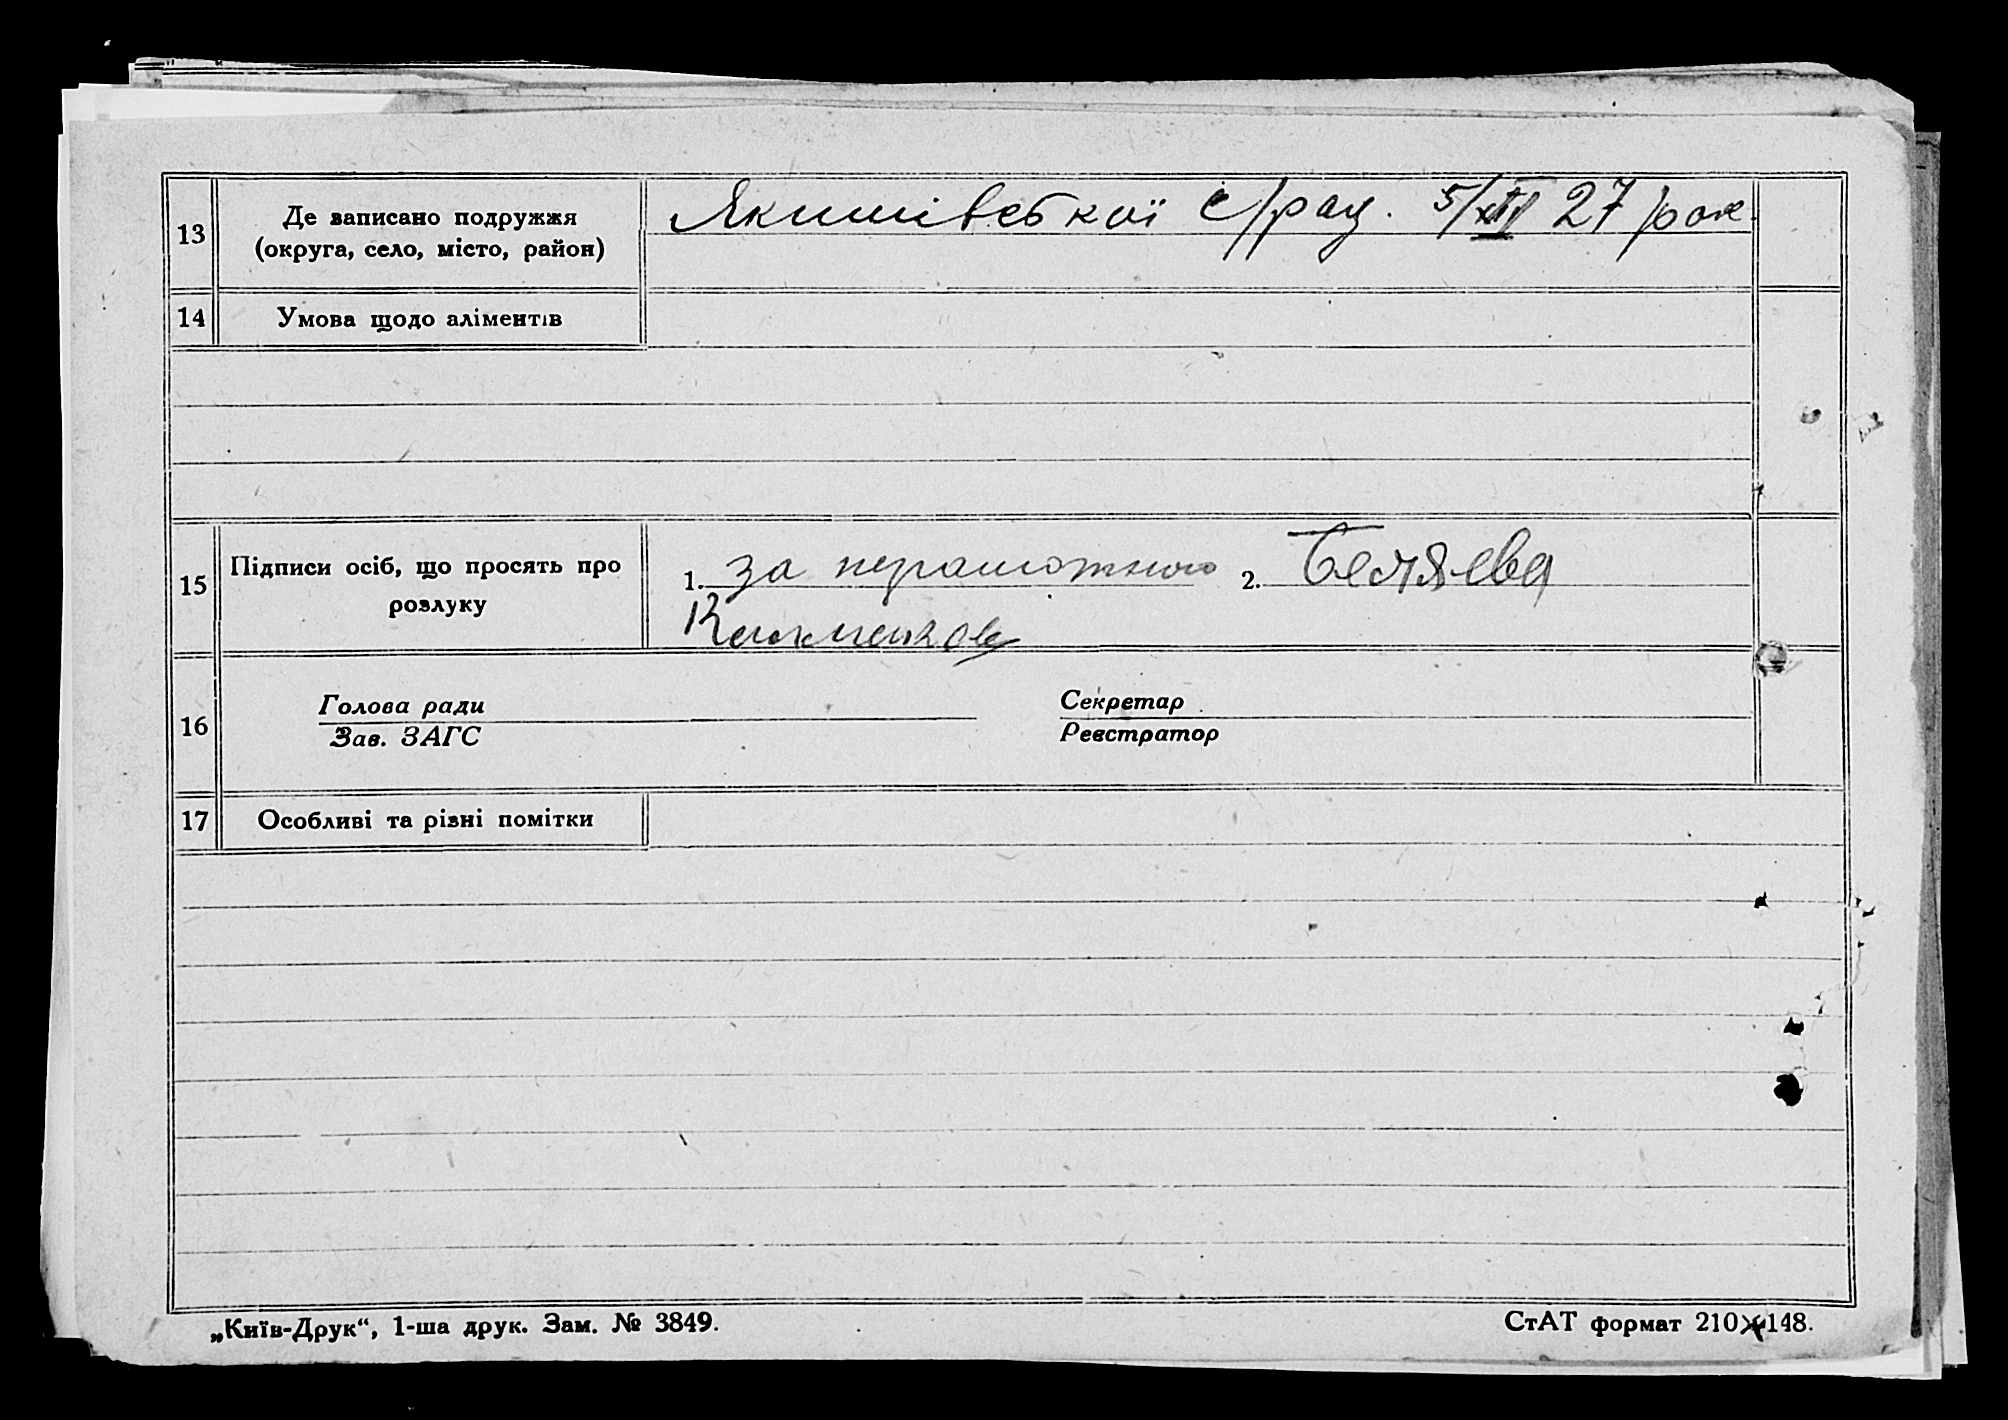 13
Де записано подружжя
(округа, село, місто, район)
Якимівської с/рад. 5/XII 27 рок.
14
Умова щодо аліментів
15
Підписи осіб, що просять про
розлуку
1. за 2. Беляева
16
Голова ради
Зав. ЗАГС
Секретар
Реєстратор
17
Особливі та різні помітки
„Київ-Друк“, 1-ша друк. Зам. № 3849.
СтАТ формат 210×148.